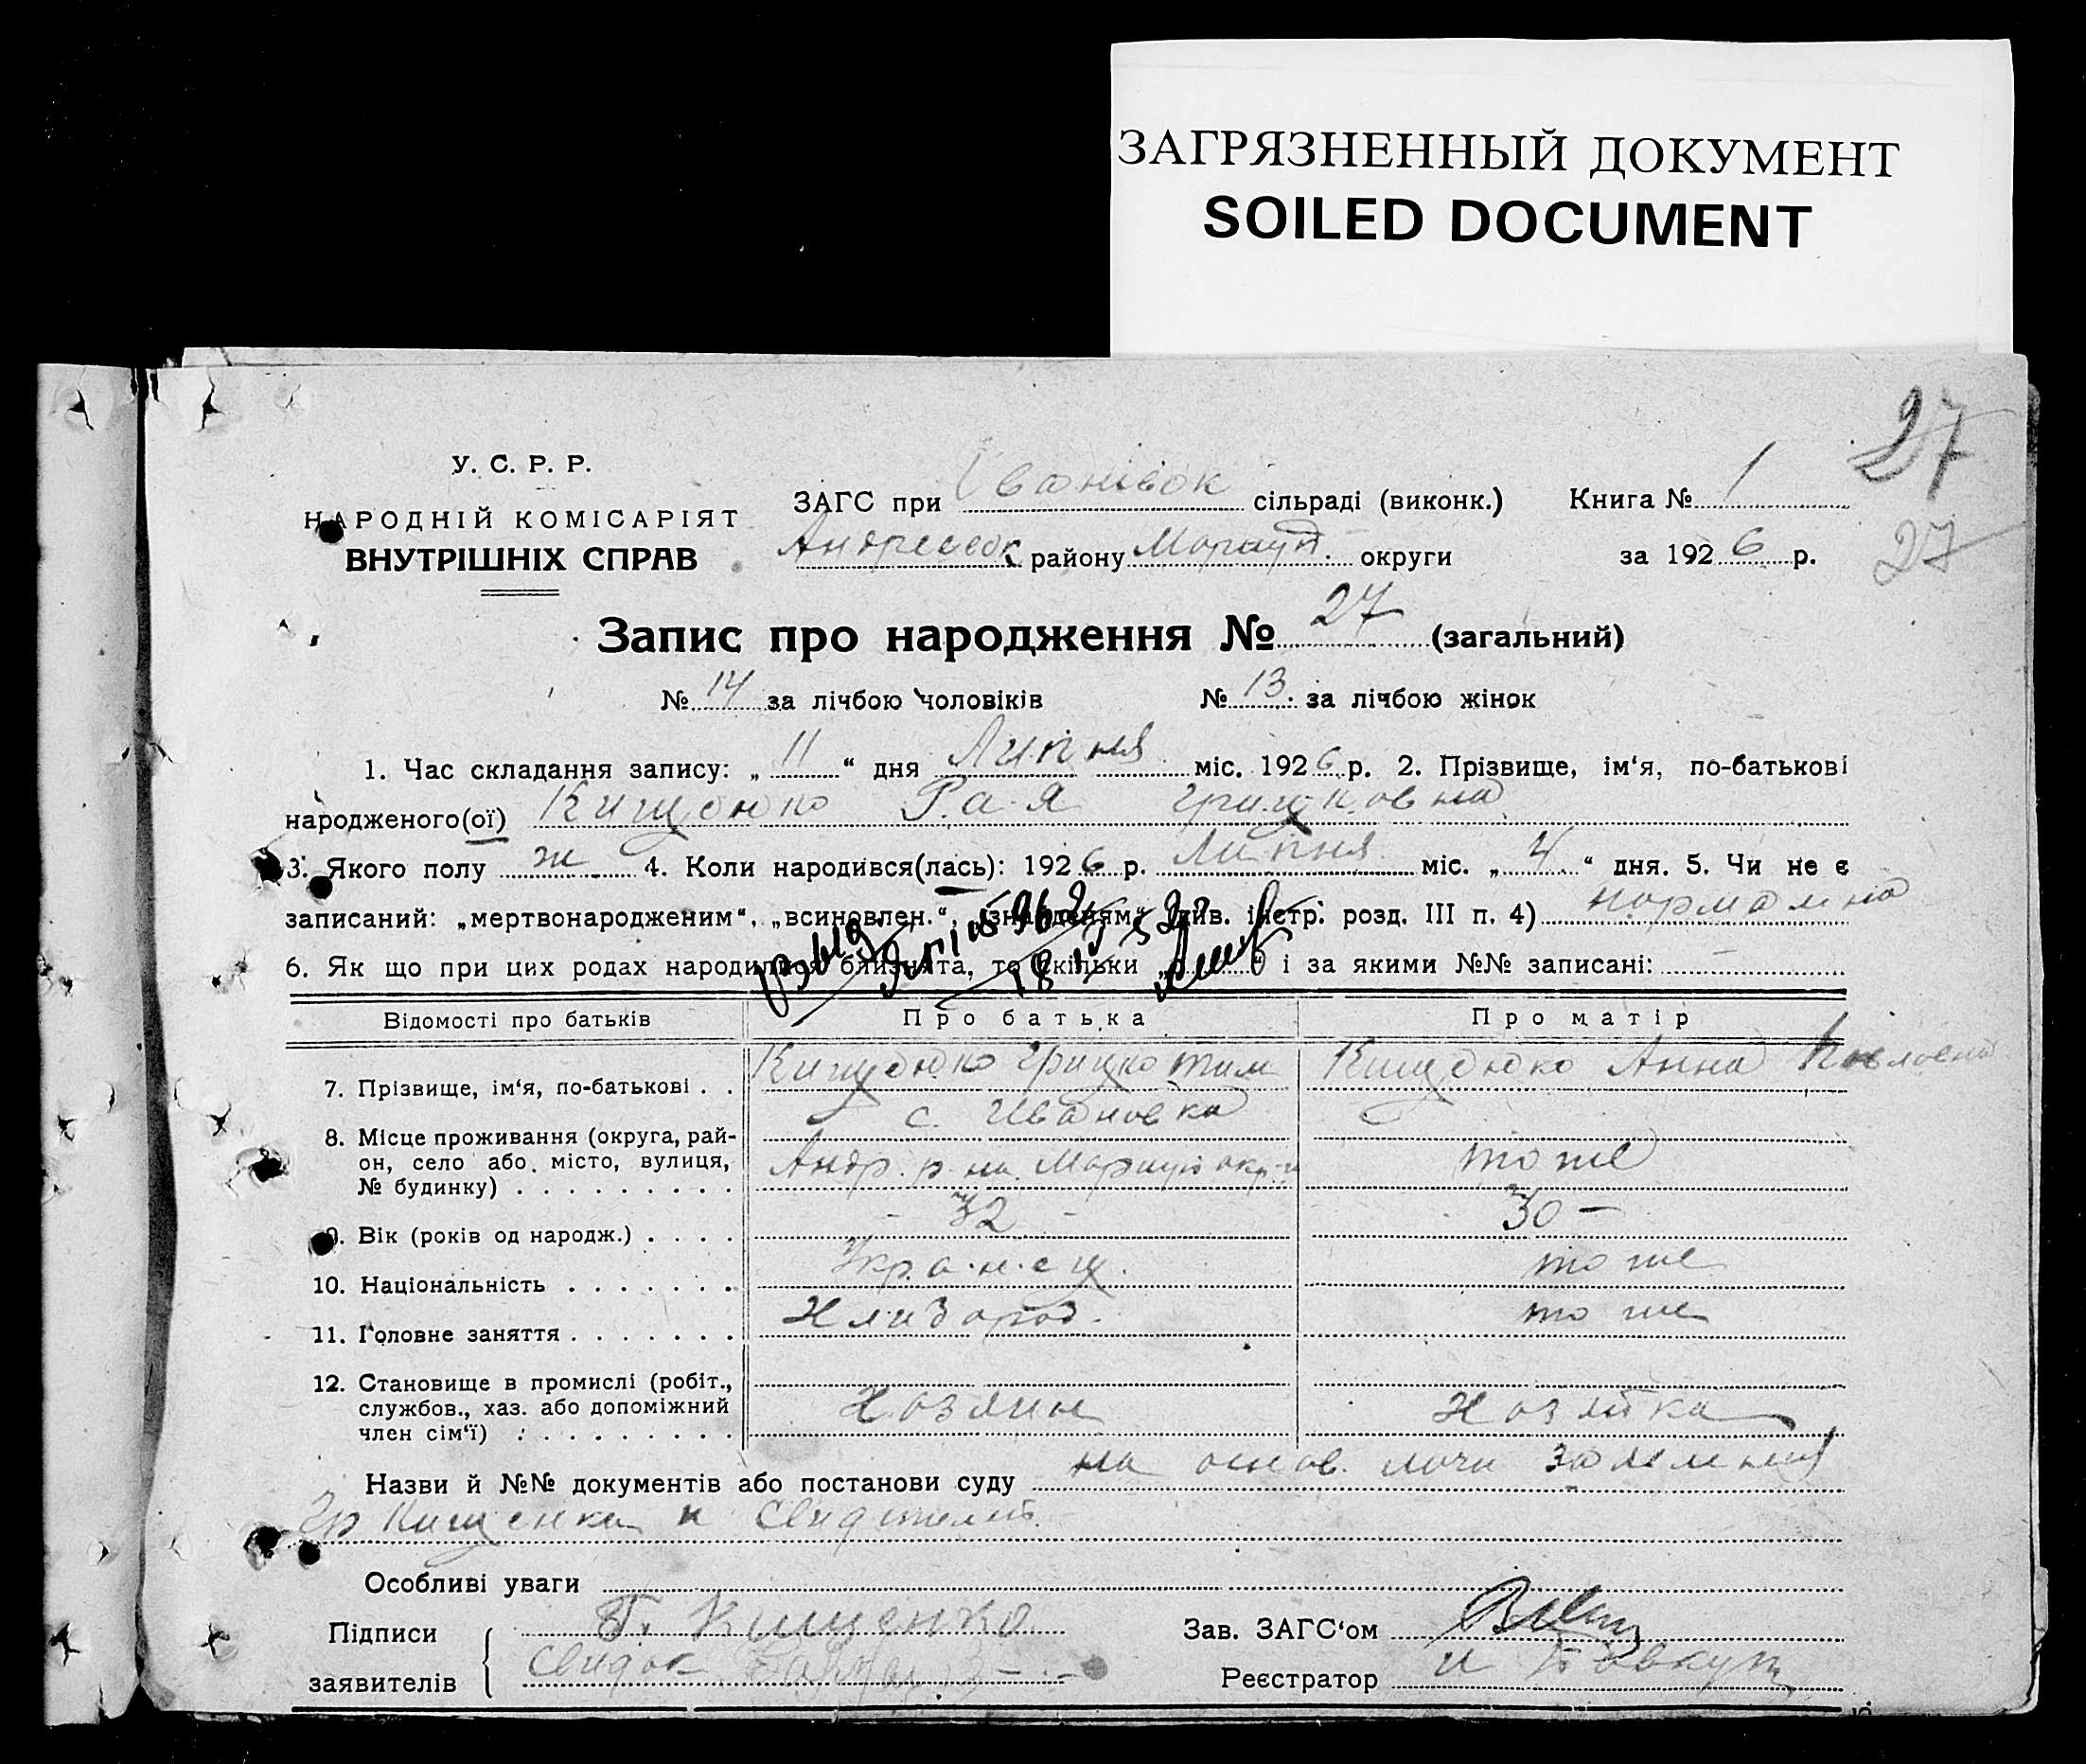 ЗАГРЯЗНЕННЫЙ ДОКУМЕНТ
SOILED DOCUMENT
27
27
У. С. Р. Р.
НАРОДНІЙ КОМІСАРІЯТ
ВНУТРІШНІХ СПРАВ
ЗАГС при Іванівок сільраді (виконк.) Книга № 1
Андреевск району Мариуп. округи за 1926 р.
Запис про народження № 27 (загальний)
№ 14 за лічбою чоловіків № 13. за лічбою жінок
1. Час складання запису: „ 11 “ дня Липня міс. 1926 р. 2. Прізвище, ім‘я, по-батькові
народженого(ої) Кищенко Рая Грицковна
3. Якого полу ж. 4. Коли народився(лась): 1926 р. Липня міс. „ 4 “ дня. 5. Чи не є
записаний: „мертвонародженим“, „всиновлен.“, „знайденям“ (див. інстр. розд. III п. 4) нормально
6. Як що при цих родах народилися близнята, то скільки „ “ і за якими №№ записані: —
Відомості про батьків Про батька Про матір
7. Прізвище, ім‘я, по-батькові . . Кищенко Грицко Тим Кищенко Анна Павловна
8. Місце проживання (округа, рай- с. Ивановка
он, село або місто, вулиця, Андр. р-на Мариуп окр-и тоже
№ будинку) . . . . . . . . .
9. Вік (років од народж.) . . . . - 32 - 30 -
10. Національність . . . . . . . Украинец. тоже
11. Головне заняття . . . . . . . Хлибороб. тоже
12. Становище в промислі (робіт.,
службов., хаз. або допоміжний Хозяин Хозяйка
член сім‘ї) . . . . . . . . .
Назви й №№ документів або постанови суду на основ. личн заявления
Гр Кищенка и Свидетелей.
Особливі уваги
Підписи Г. Кищенко Зав. ЗАГС‘ом
заявителів Свидок Реєстратор